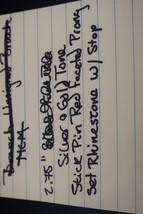 MCM
2.75"
Silver & Gold Tone
Stick Pin Red Faceted Prong
Set Rhinestone w/ Stop